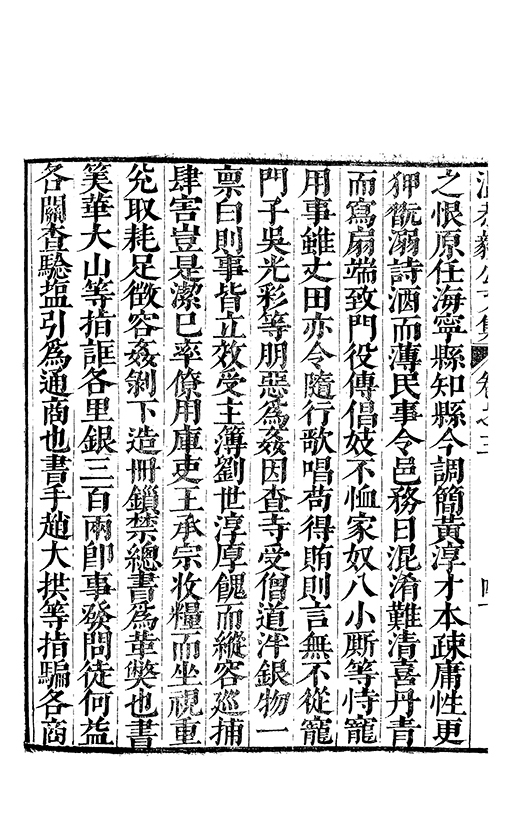 文集 卷之三
之恨原任海寧縣知縣今調簡黃淳才本疎庸性更
狎翫溺詩酒而薄民事令邑務日混淆難清喜丹青
而寫扇端致門役傳倡妓不恤家奴八小厮等恃寵
用事雖丈田亦令隨行歌唱苟得賄則言無不從寵
門子吳光彩等朋惡為姦因查寺受僧道泮銀物一
稟曰則事皆立效受主簿劉世淳厚餽而縱容巡捕
肆害豈是潔巳率僚用庫吏王承宗收糧而坐視重
兊取耗足徵容姦剝下造冊鎖禁總書為革獘也書
筭華大山等指誆各里銀三百兩卽事發問徒何益
各關查驗塩引為通商也書手趙大拱等指騙各商